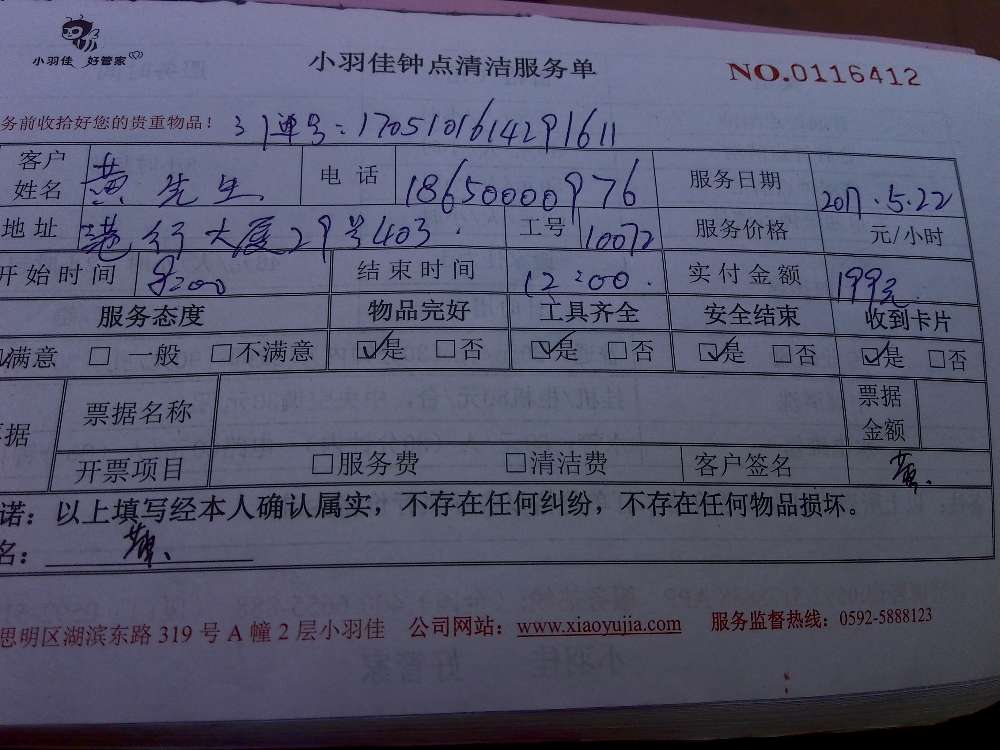 小羽佳 好管家
小羽佳钟点清洁服务单
NO.0116412
务前收拾好您的贵重物品!
订单号:17051016142916 11
客户姓名 黄先生 电话 18650000976 服务日期 2017.5.22
地址 港行大厦29号403 工号 10072 服务价格 元/小时
开始时间 9:00 结束时间 12:00 实付金额 199元
服务态度 物品完好 工具齐全 安全结束 收到卡片
满意 □ 一般 □不满意 ☑是 □否 ☑是 □否 ☑是 □否 ☑是 □否
据 票据名称 票据金额
开票项目 □服务费 □清洁费 客户签名 黄
诺:以上填写经本人确认属实,不存在任何纠纷,不存在任何物品损坏。
名: 黄
思明区湖滨东路 319 号 A 幢 2 层小羽佳 公司网站:www.xiaoyujia.com 服务监督热线:0592-5888123